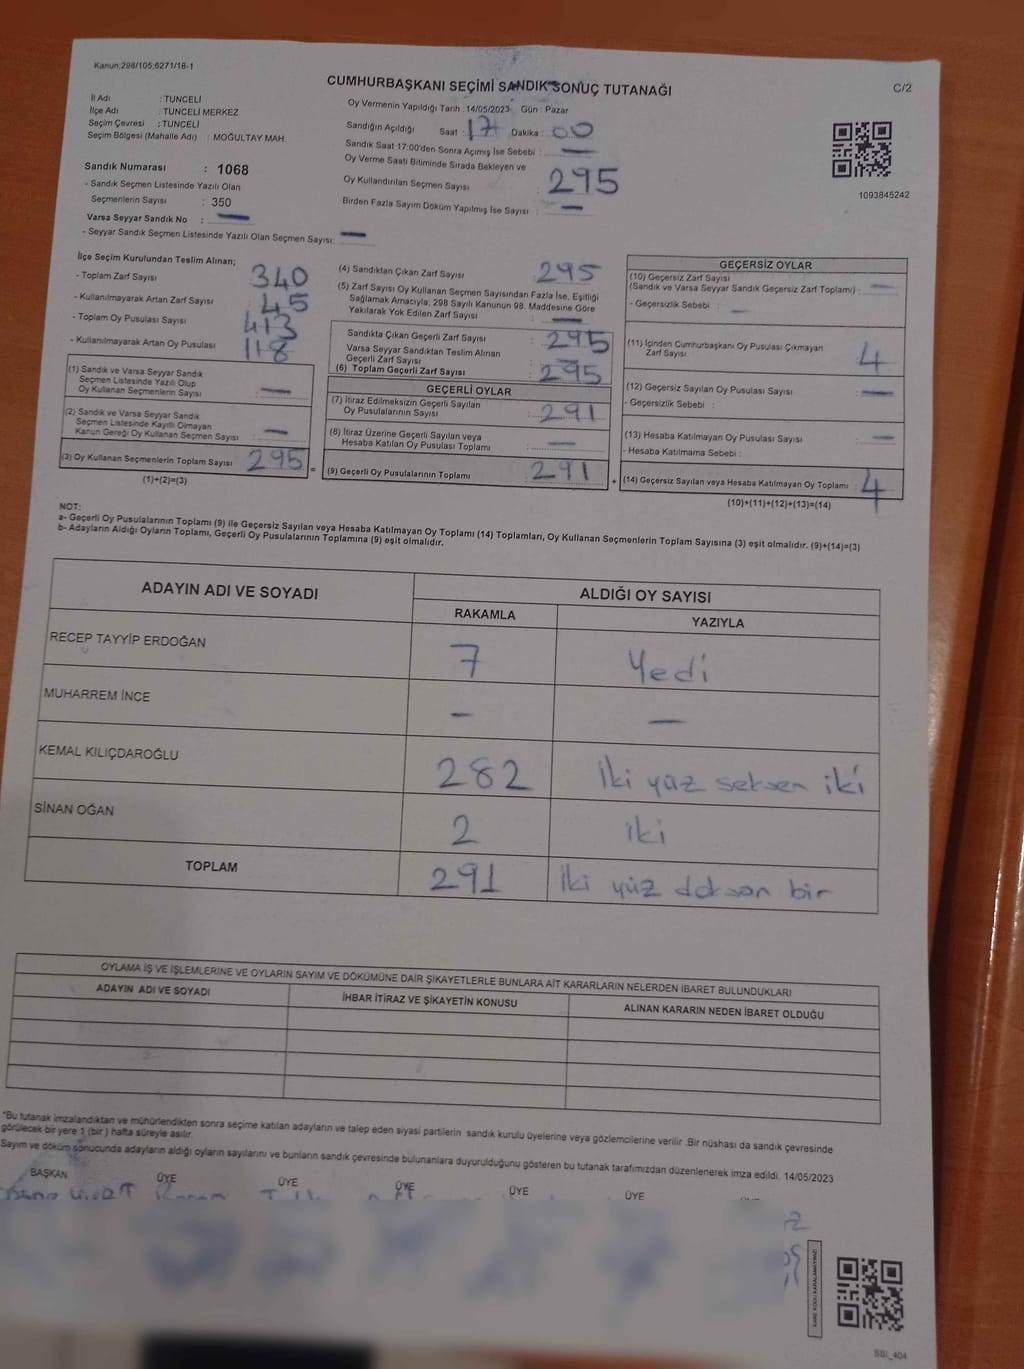 Kanun;298/105,6271/18-1
CUMHURBAŞKANI SEÇİMİ SANDIK SONUÇ TUTANAĞI
C/2
İl Adı : TUNCELİ
İlçe Adı : TUNCELİ MERKEZ
Seçim Çevresi : TUNCELİ
Seçim Bölgesi (Mahalle Adı) : MOĞULTAY MAH.
Sandık Numarası : 1068
- Sandık Seçmen Listesinde Yazılı Olan
Seçmenlerin Sayısı : 350
Varsa Seyyar Sandık No : —
- Seyyar Sandık Seçmen Listesinde Yazılı Olan Seçmen Sayısı: —
Oy Vermenin Yapıldığı Tarih : 14/05/2023 Gün : Pazar
Sandığın Açıldığı Saat : 17 Dakika : 00
Sandık Saat 17:00'den Sonra Açımış İse Sebebi : —
Oy Verme Saati Bitiminde Sırada Bekleyen ve
Oy Kullandırılan Seçmen Sayısı : 295
Birden Fazla Sayım Döküm Yapılmış İse Sayısı : —
1093845242
İlçe Seçim Kurulundan Teslim Alınan;
- Toplam Zarf Sayısı 340
- Kullanılmayarak Artan Zarf Sayısı 45
- Toplam Oy Pusulası Sayısı 413
- Kullanılmayarak Artan Oy Pusulası 118
(1) Sandık ve Varsa Seyyar Sandık
Seçmen Listesinde Yazılı Olup
Oy Kullanan Seçmenlerin Sayısı : —
(2) Sandık ve Varsa Seyyar Sandık
Seçmen Listesinde Kayıtlı Olmayan
Kanun Gereği Oy Kullanan Seçmen Sayısı : —
(3) Oy Kullanan Seçmenlerin Toplam Sayısı 295 =
(1)+(2)=(3)
(4) Sandıktan Çıkan Zarf Sayısı : 295
(5) Zarf Sayısı Oy Kullanan Seçmen Sayısından Fazla İse, Eşitliği
Sağlamak Amacıyla; 298 Sayılı Kanunun 98. Maddesine Göre
Yakılarak Yok Edilen Zarf Sayısı : —
Sandıkta Çıkan Geçerli Zarf Sayısı : 295
Varsa Seyyar Sandıktan Teslim Alınan
Geçerli Zarf Sayısı
(6) Toplam Geçerli Zarf Sayısı : 295
GEÇERLİ OYLAR
(7) İtiraz Edilmeksizin Geçerli Sayılan
Oy Pusulalarının Sayısı : 291
(8) İtiraz Üzerine Geçerli Sayılan veya
Hesaba Katılan Oy Pusulası Toplamı : —
(9) Geçerli Oy Pusulalarının Toplamı : 291 +
GEÇERSİZ OYLAR
(10) Geçersiz Zarf Sayısı
(Sandık ve Varsa Seyyar Sandık Geçersiz Zarf Toplamı) : —
- Geçersizlik Sebebi : —
(11) İçinden Cumhurbaşkanı Oy Pusulası Çıkmayan
Zarf Sayısı : 4
(12) Geçersiz Sayılan Oy Pusulası Sayısı : —
- Geçersizlik Sebebi :
(13) Hesaba Katılmayan Oy Pusulası Sayısı : —
- Hesaba Katılmama Sebebi :
(14) Geçersiz Sayılan veya Hesaba Katılmayan Oy Toplamı : 4
(10)+(11)+(12)+(13)=(14)
NOT:
a- Geçerli Oy Pusulalarının Toplamı (9) ile Geçersiz Sayılan veya Hesaba Katılmayan Oy Toplamı (14) Toplamları, Oy Kullanan Seçmenlerin Toplam Sayısına (3) eşit olmalıdır. (9)+(14)=(3)
b- Adayların Aldığı Oyların Toplamı, Geçerli Oy Pusulalarının Toplamına (9) eşit olmalıdır.
ADAYIN ADI VE SOYADI ALDIĞI OY SAYISI
RAKAMLA YAZIYLA
RECEP TAYYİP ERDOĞAN 7 Yedi
MUHARREM İNCE — —
KEMAL KILIÇDAROĞLU 282 İki yüz seksen iki
SİNAN OĞAN 2 iki
TOPLAM 291 İki yüz doksan bir
OYLAMA İŞ VE İŞLEMLERİNE VE OYLARIN SAYIM VE DÖKÜMÜNE DAİR ŞİKAYETLERLE BUNLARA AİT KARARLARIN NELERDEN İBARET BULUNDUKLARI
ADAYIN ADI VE SOYADI İHBAR İTİRAZ VE ŞİKAYETİN KONUSU ALINAN KARARIN NEDEN İBARET OLDUĞU
"Bu tutanak imzalandıktan ve mühürlendikten sonra seçime katılan adayların ve talep eden siyasi partilerin sandık kurulu üyelerine veya gözlemcilerine verilir .Bir nüshası da sandık çevresinde
görülecek bir yere 1 (bir ) hafta süreyle asılır.
Sayım ve döküm sonucunda adayların aldığı oyların sayılarını ve bunların sandık çevresinde bulunanlara duyurulduğunu gösteren bu tutanak tarafımızdan düzenlenerek imza edildi. 14/05/2023
BAŞKAN ÜYE ÜYE ÜYE ÜYE ÜYE
SSI_404